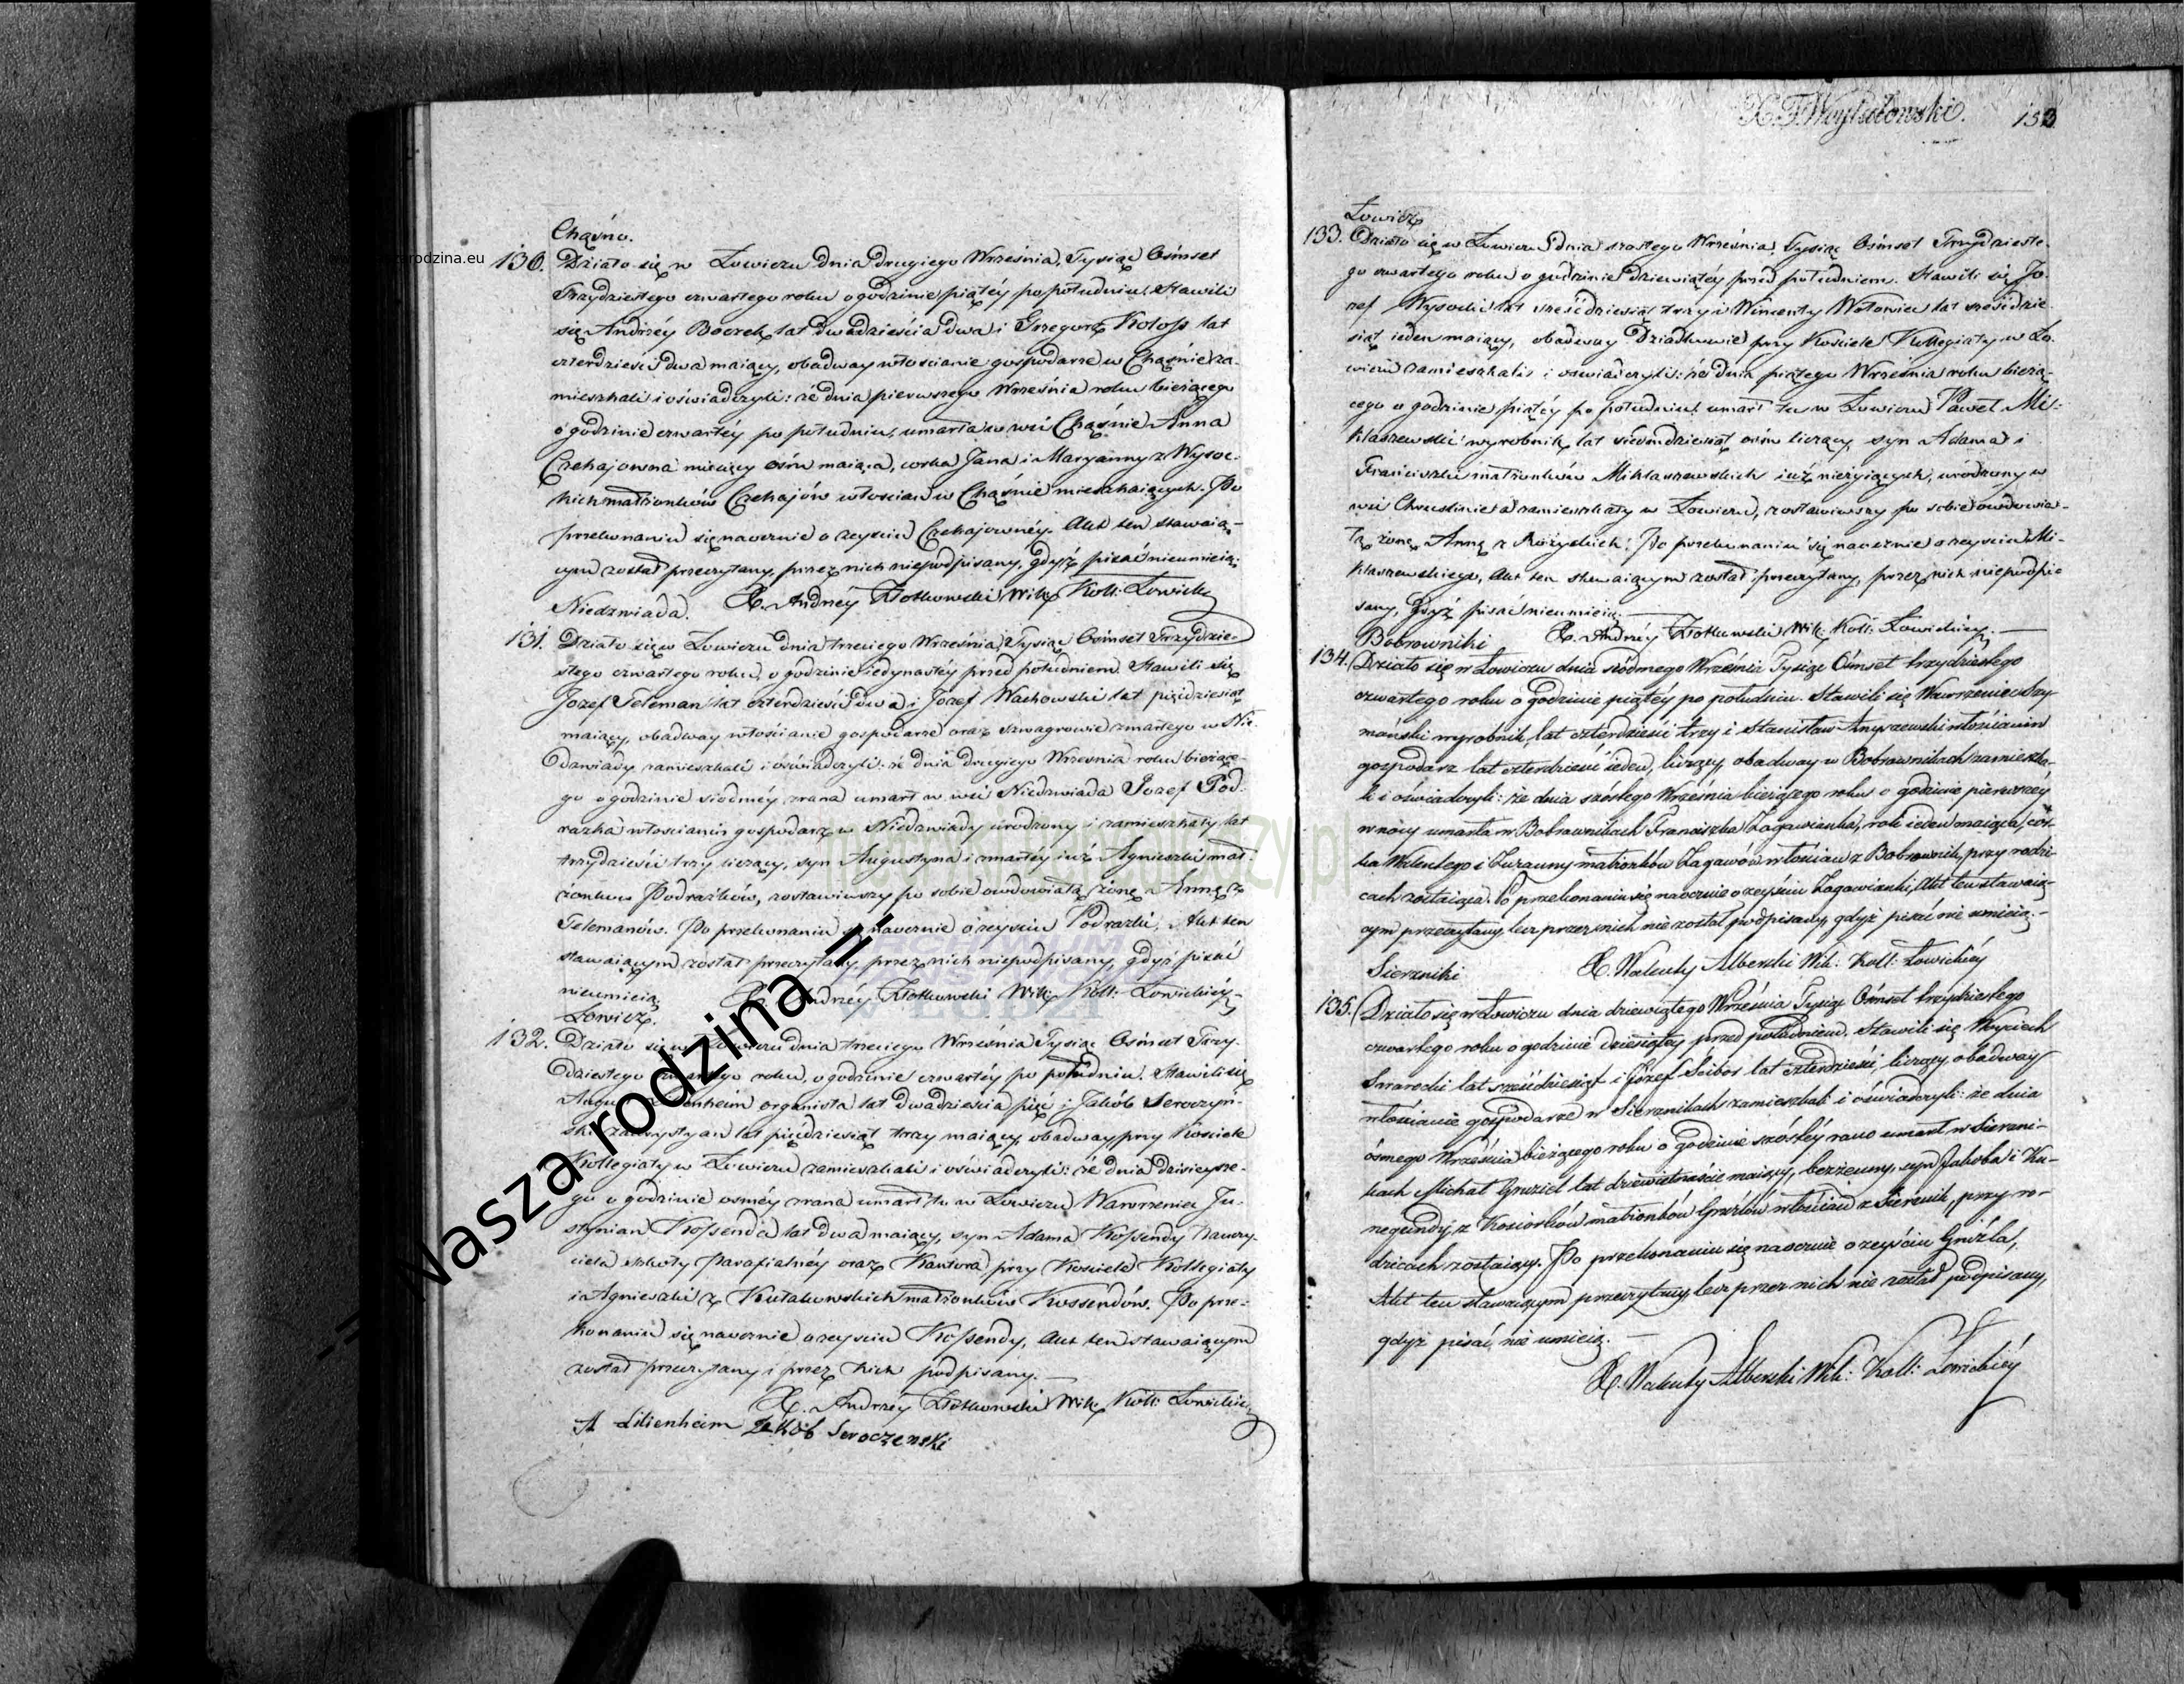 Chąśno.
130. Działo się w Łowiczu dnia drugiego Września, Tysiąc Ośmset
Trzydziestego czwartego roku o godzinie piątéy po południu. Stawili
się Andrzéy Boczek lat dwadzieścia dwa i Grzegorz Kołoss lat
czterdzieści dwa maiący, obadway włościanie gospodarze w Chąśnie za-
mieszkali i oświadczyli: że dnia pierwszego Września roku bieżącego
o godzinie czwartéy po południu, umarła w wsi Chąśnie Anna
Czekajowna miesięcy ośm maiąca, córka Jana i Maryanny z Wysoc-
kich małżonków Czekajów włościan w Chąśnie mieszkaiących. Po
przekonaniu się naocznie o zeyściu Czekajownéy. Akt ten stawaią-
cym został przeczytany, przez nich niepodpisany, gdyż pisać nieumieią.
Niedzwiada. X. Andrzéy Złotkowski Wik. Koll: Łowicki
131. Działo się w Łowiczu dnia trzeciego Września, Tysiąc Ośmset Trzydzie-
stego czwartego roku, o godzinie iedynastéy przed południem. Stawili się
Jozef Teleman lat czterdzieści dwa i Józef Wachowski lat pięćdziesiąt
maiący, obadway włościanie gospodarze oraz szwagrowie zmarłego w Nie-
dzwiady zamieszkali i oświadczyli: że dnia drugiego Września roku bieżące-
go o godzinie siodméy zrana umarł w wsi Niedzwiada Jozef Pod-
razka włościanin gospodarz w Niedzwiady urodzony i zamieszkały lat
trzydzieści trzy liczący, syn Augustyna i zmarłéy iuż Agnieszki mał-
żonków Podrazków, zostawiwszy po sobie owdowiałą żonę Annę z
Telemanów. Po przekonaniu się naocznie o zeyściu Podrazki, Akt ten
stawaiącym został przeczytany, przez nich niepodpisany, gdyż pisać
nieumieią. X. Andrzéy Złotkowski Wik. Koll: Łowickiéy
Łowicz.
132. Działo się w Łowiczu dnia trzeciego Września Tysiąc Ośmset Trzy-
dziestego czwartego roku, o godzinie czwartéy po południu. Stawili się
August Lilienheim organista lat dwadzieścia pięć i Jakób Seroczyń-
ski zakrystyan lat pięćdziesiąt trzy maiący, obadway przy Kościele
Kollegiaty w Łowiczu zamieszkali i oświadczyli: że dnia dzisieysze-
go o godzinie osméy zrana umarł tu w Łowiczu Wawrzeniec Ju-
stynian Kossenda lat dwa maiący, syn Adama Kossendy Nauczy-
ciela szkoły Parafialnéy oraz Kantora przy Kościele Kollegiaty
i Agnieszki z Kułakowskich małżonków Kossendów. Po prze-
konaniu się naocznie o zeyściu Kossendy, Akt ten stawaiącym
został przeczytany i przez nich podpisany.
X. Andrzéy Złotkowski Wik. Koll: Łowickiéy
A Lilienheim Jakób Seroczenski
133
Łowicz
133. Działo się w Łowiczu dnia szostego Września, Tysiąc Ośmset Trzydzieste-
go czwartego roku o godzinie dziewiątéy przed południem. Stawili się Jo-
zef Wysocki lat sześćdziesiąt trzy i Wincenty Wołowiec lat sześćdzie-
siąt ieden maiący, obadway Dziadkowie przy Kościele Kollegiaty w Ło-
wiczu zamieszkali i oświadczyli: że dnia piątego Września roku bieżą-
cego o godzinie piątéy po południu umarł tu w Łowiczu Paweł Mi-
klaszewski wyrobnik lat siedmdziesiąt ośm liczący, syn Adama i
Franciszki małżonków Miklaszewskich iuż nieżyiących, urodzony w
wsi Chruslinie a zamieszkały w Łowiczu, zostawiwszy po sobie owdowia-
łą żonę Annę z Rożyckich. Po przekonaniu się naocznie o zeyściu Mi-
klaszewskiego, Akt ten stawaiącym został przeczytany, przez nich niepodpi-
sany, gdyż pisać nieumieią.
Bobrowniki X. Andrzéy Złotkowski Wik. Koll: Łowickiéy.
134. Działo się w Łowiczu dnia siódmego Września Tysiąc Ośmset trzydziestego
czwartego roku o godzinie piątéy po południu. Stawili się Wawrzeniec Szy-
mański wyrobnik, lat czterdzieści trzy i Stanisław Anyszewski włościanin
gospodarz lat czterdzieści ieden, liczący, obadway w Bobrownikach zamieszka-
li i oświadczyli: że dnia szóstego Września bieżącego roku o godzinie pierwszéy
w nocy umarła w Bobrownikach Franciszka Zagawianka, rok ieden maiąca, cór-
ka Walentego i Zuzanny małżonków Zagawów włościan z Bobrownik, przy rodzi-
cach zostaiąca. Po przekonaniu się naocznie o zeyściu Zagawianki, Akt ten stawaią-
cym przeczytany, lecz przez nich nie został podpisany, gdyż pisać nie umieią.
Sierzniki X. Walenty Alberski Wik: Koll: Łowickiéy
135. Działo się w Łowiczu dnia dziewiątego Września Tysiąc Ośmset trzydziestego
czwartego roku o godzinie dziesiątéy przed południem. Stawili się Woyciech
Swarocki lat sześćdziesiąt i Józef Scibor lat czterdzieści, liczący, obadway
włościanie gospodarze w Sierznikach zamieszkali i oświadczyli: że dnia
ósmego Września bieżącego roku o godzinie szóstéy rano umarł w Sierzni-
kach Michał Gruziel lat dziewietnaście maiący, bezżenny, syn Jakóba i Ku-
negundy z Kosiorków małżonków Gruźlów włościan z Sierznik, przy ro-
dzicach zostaiący. Po przekonaniu się naocznie o zeyściu Gruźla,
Akt ten stawaiącym przeczytany, lecz przez nich nie został podpisany,
gdyż pisać nie umieią.
X. Walenty Alberski Wik: Koll: Łowickiéy
-= Nasza rodzina =-
ARCHIWUM
PAŃSTWOWE
W ŁODZI